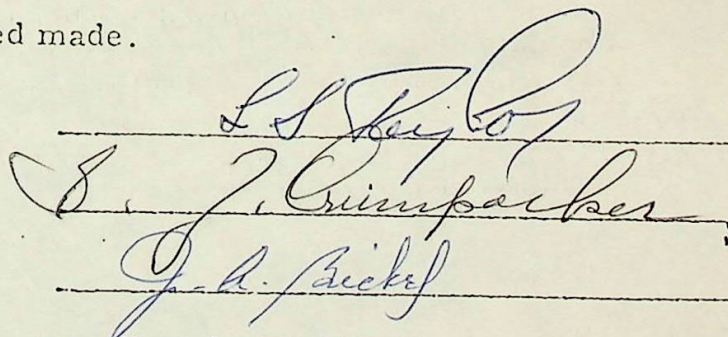 ed made.
L S
S. J. Crumpacker
J. A. Bickel